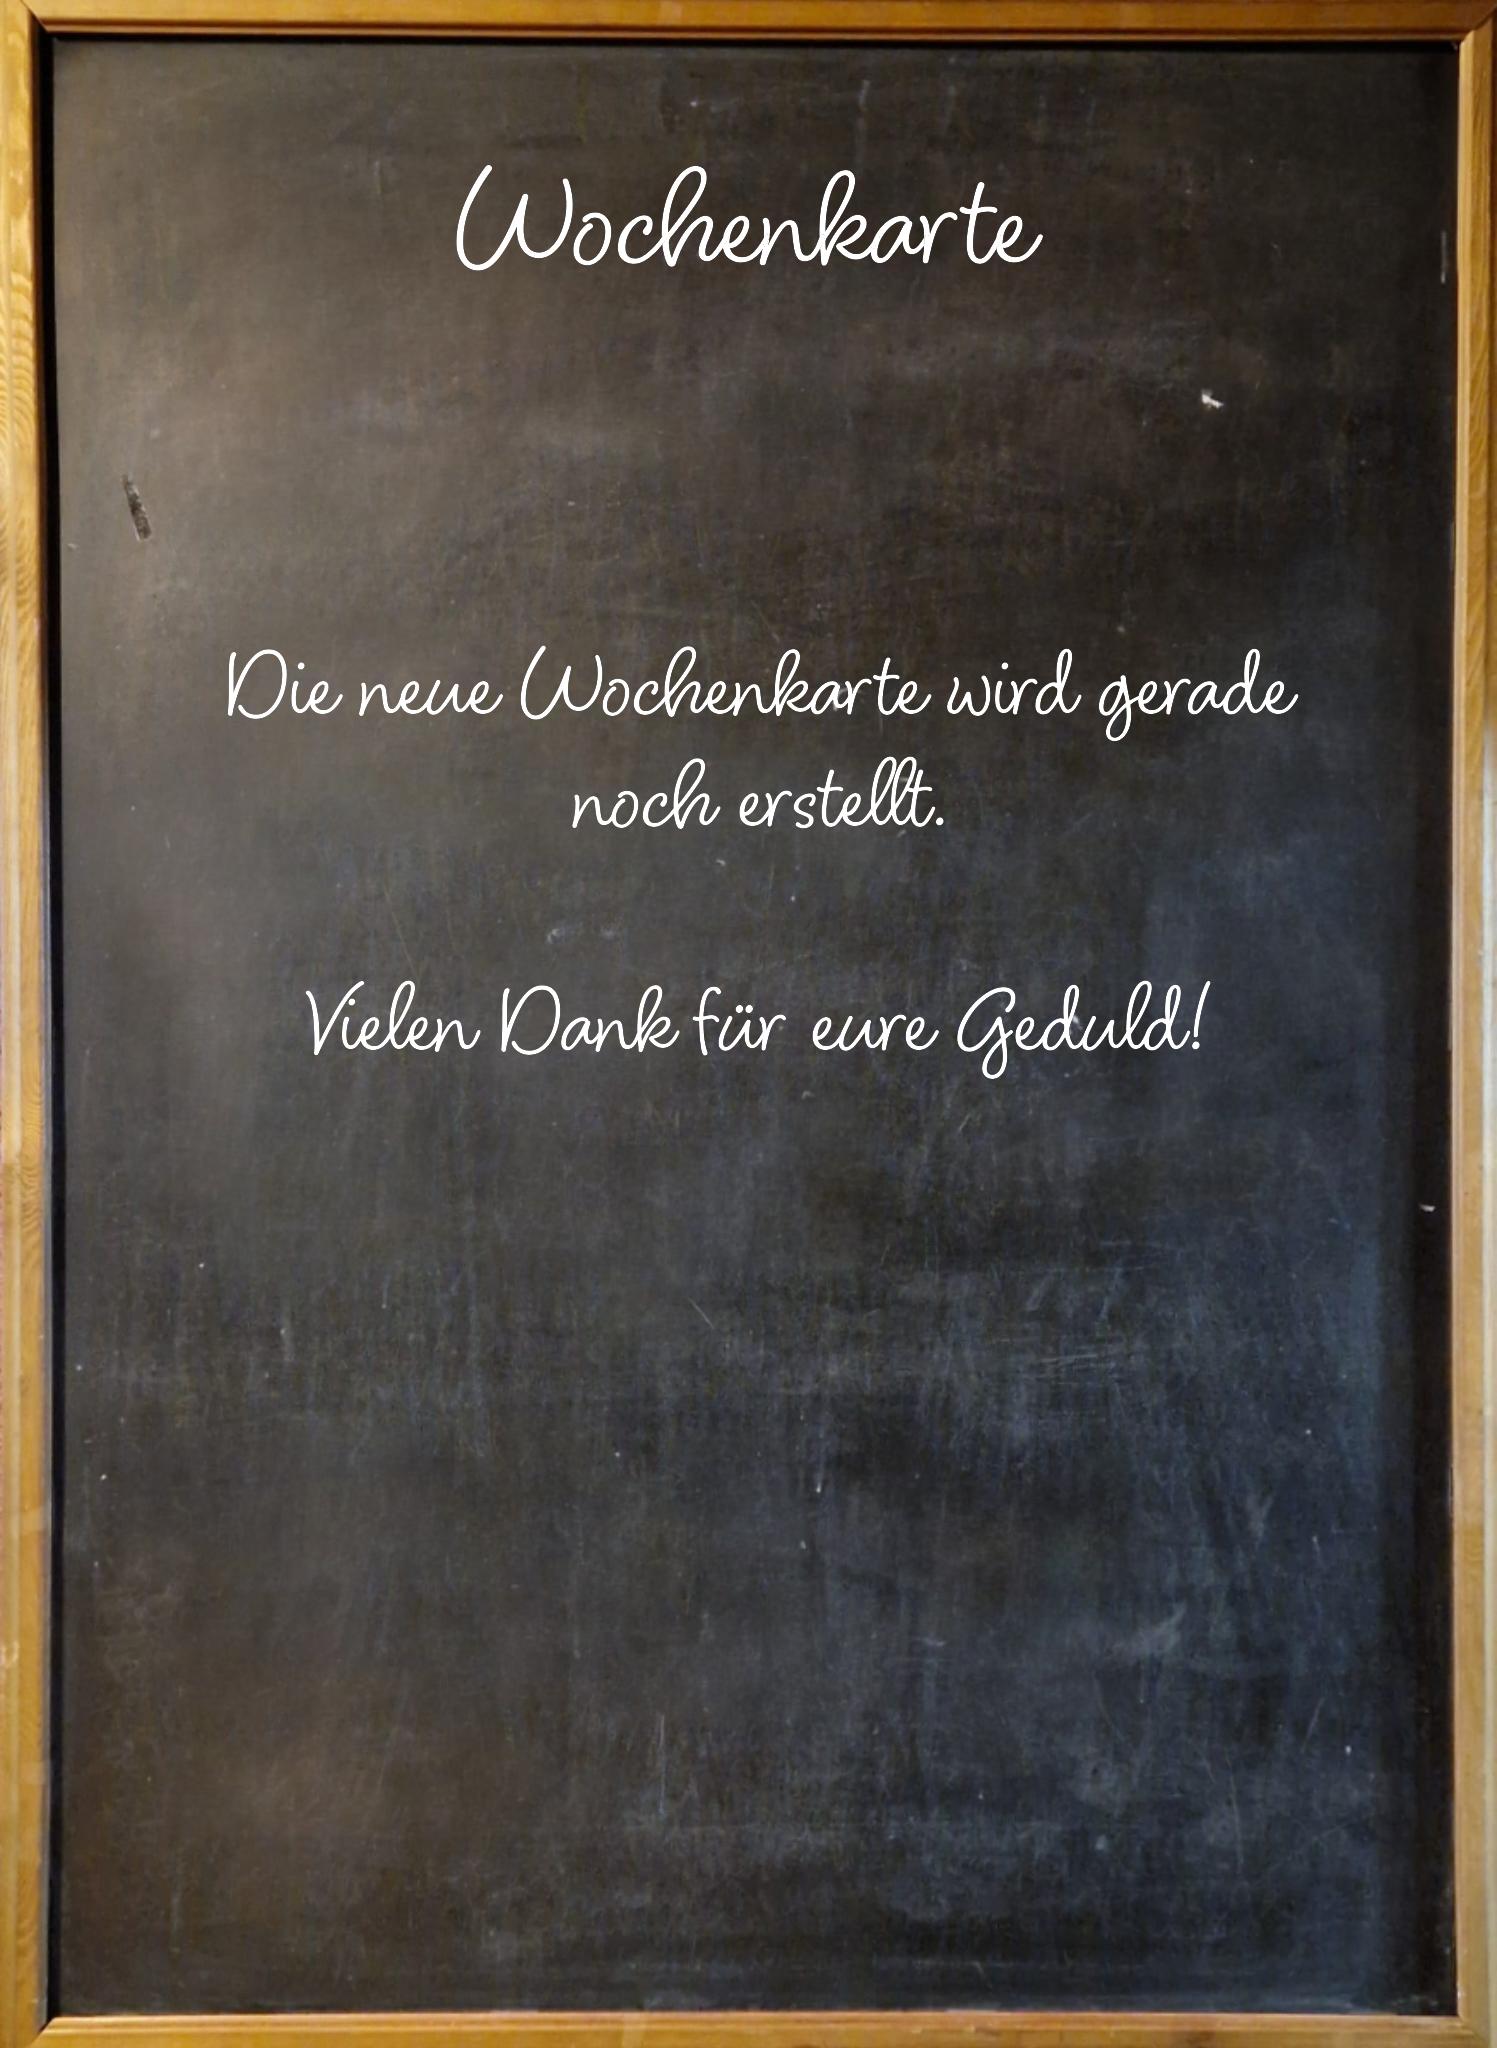 Wochenkarte
Die neue Wochenkarte wird gerade
noch erstellt.
Vielen Dank für eure Geduld!